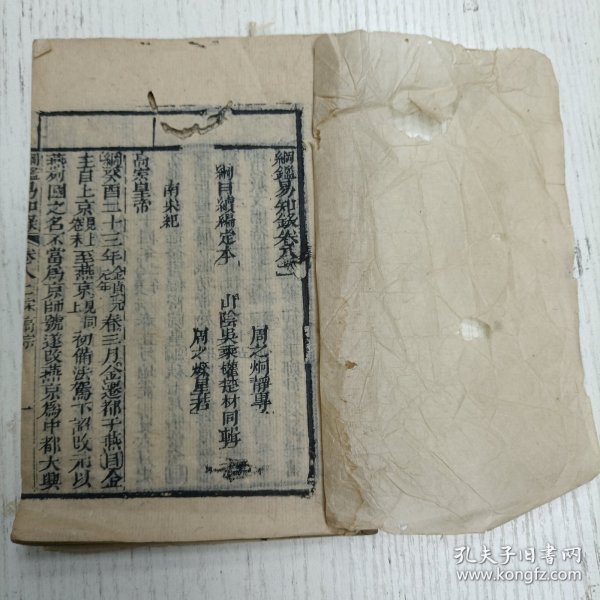 綱鑑易知錄卷八十一
綱目續編定本
周之炯靜專
山陰吳乘權楚材同輯
周之燦星若
南宋紀
高宗皇帝
綱癸酉二十三年金貞元元年春三月金遷都于燕目金
主自上京見上卷末至燕京見上初備法駕下詔改元以
燕列國之名不當爲京師號遂改燕京爲中都大興
綱鑑易知錄 卷八十一 宋高宗 一
孔夫子旧书网
www.kongfz.com